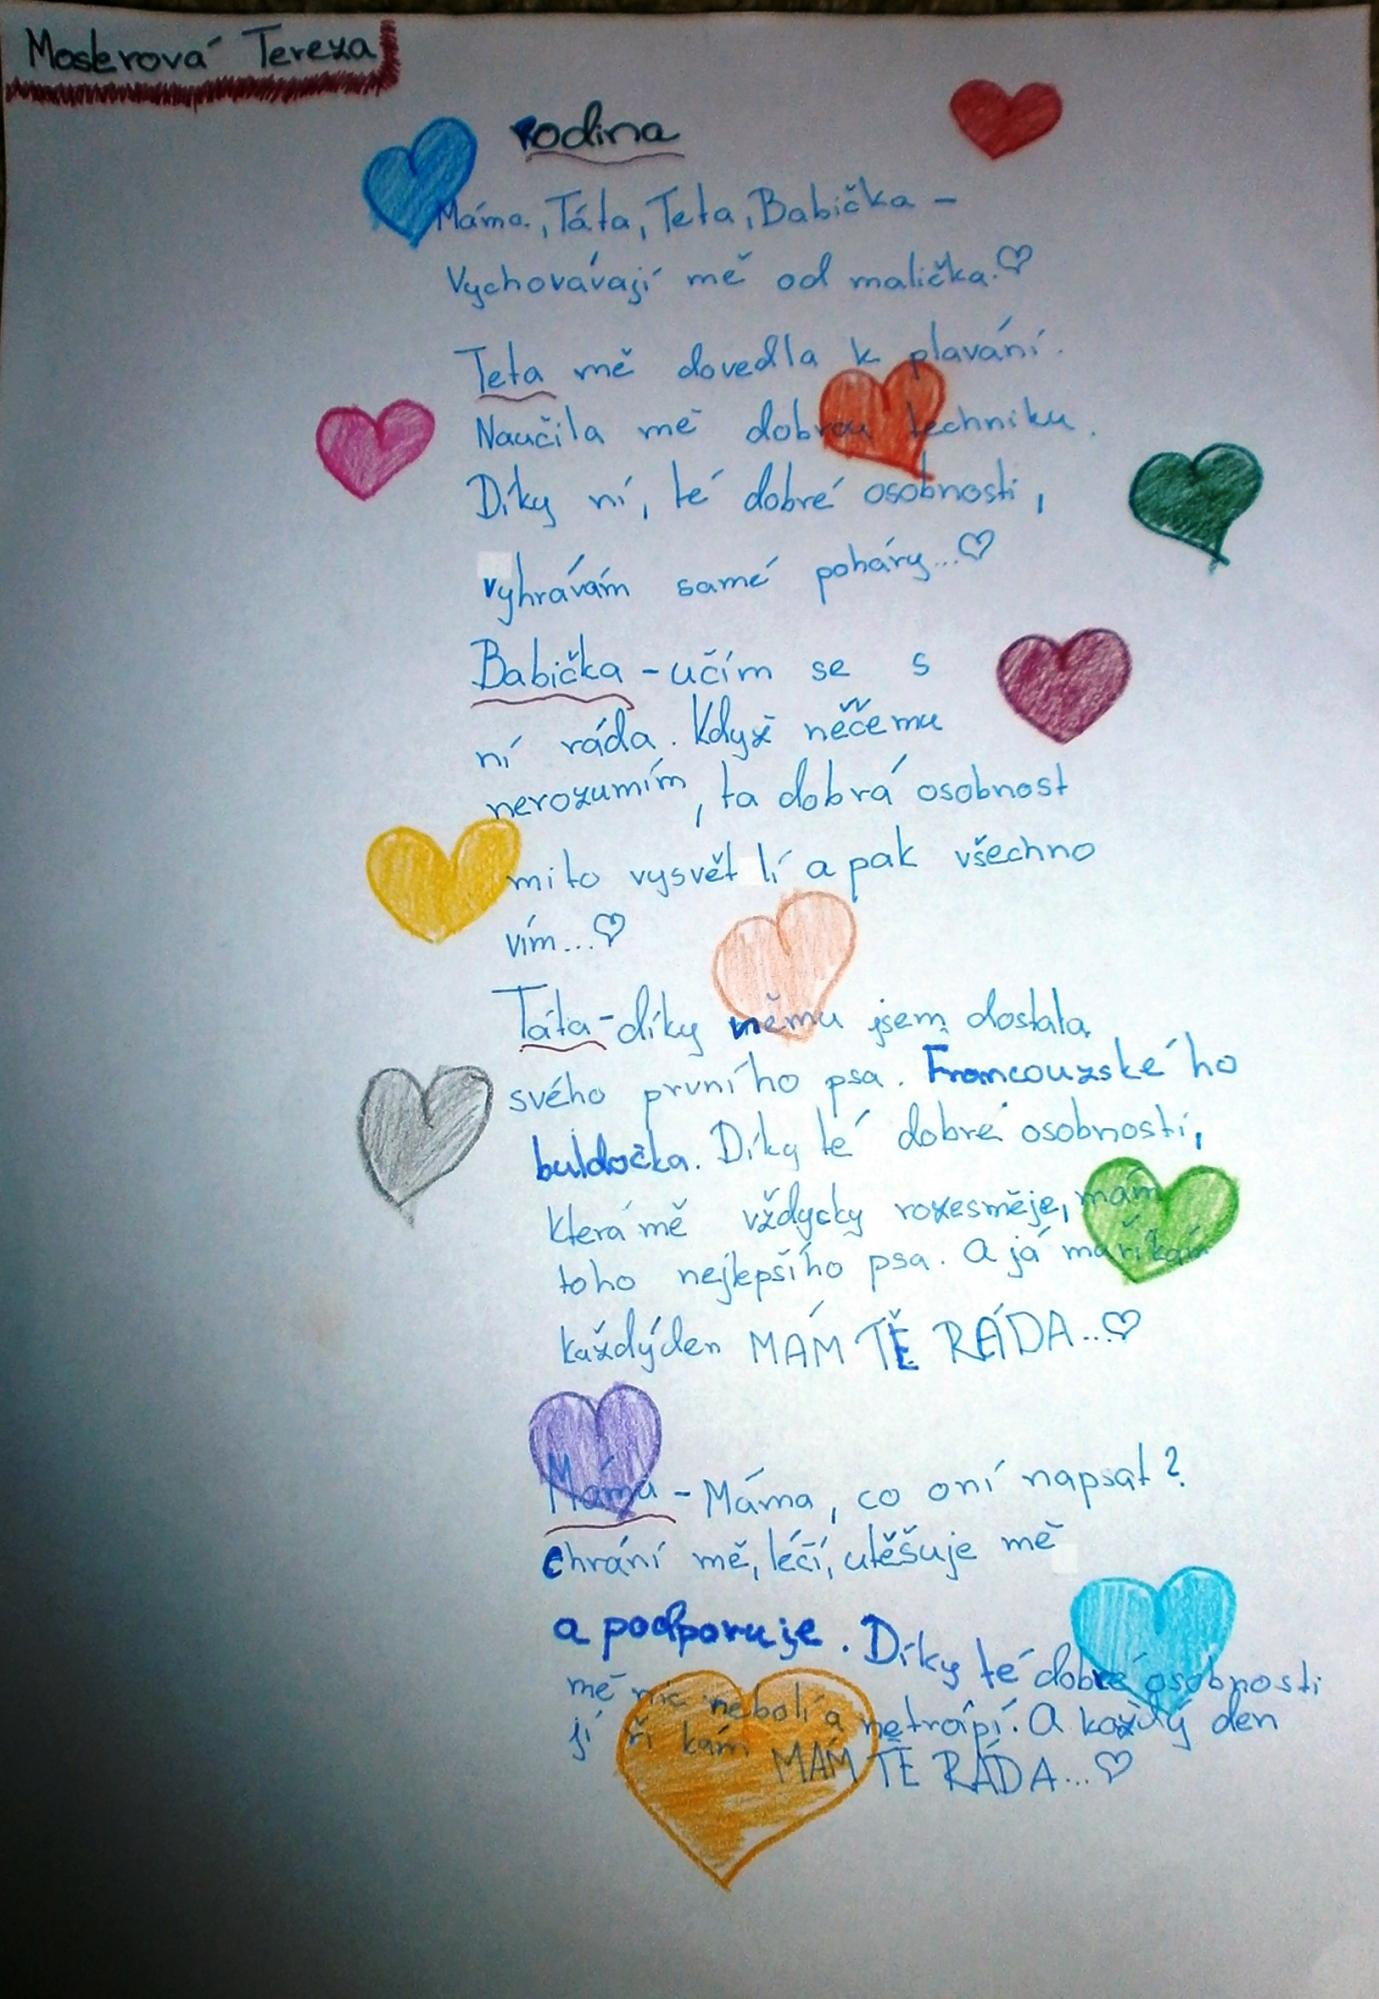 Moskrová Tereza
Rodina
Máma, Táta, Teta, Babička -
Vychovávají mě od malička.♡
Teta mě dovedla k plavání.
Naučila mě dobrou techniku.
Díky ní, té dobré osobnosti,
vyhrávám samé poháry...♡
Babička - učím se s
ní ráda. Když něčemu
nerozumím, ta dobrá osobnost
mi to vysvětlí a pak všechno
vím...♡
Táta - díky němu jsem dostala
svého prvního psa. Francouzského
buldočka. Díky té dobré osobnosti,
která mě vždycky rozesměje, mám
toho nejlepšího psa. A já mu říkám
každý den MÁM TĚ RÁDA...♡
Máma - Máma, co o ní napsat?
chrání mě, léčí, utěšuje mě
a podporuje. Díky té dobré osobnosti
mě nic nebolí a netrápí. A každý den
jí říkám MÁM TĚ RÁDA...♡